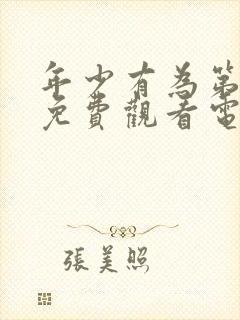 年少有為第
免費觀看電
張美照